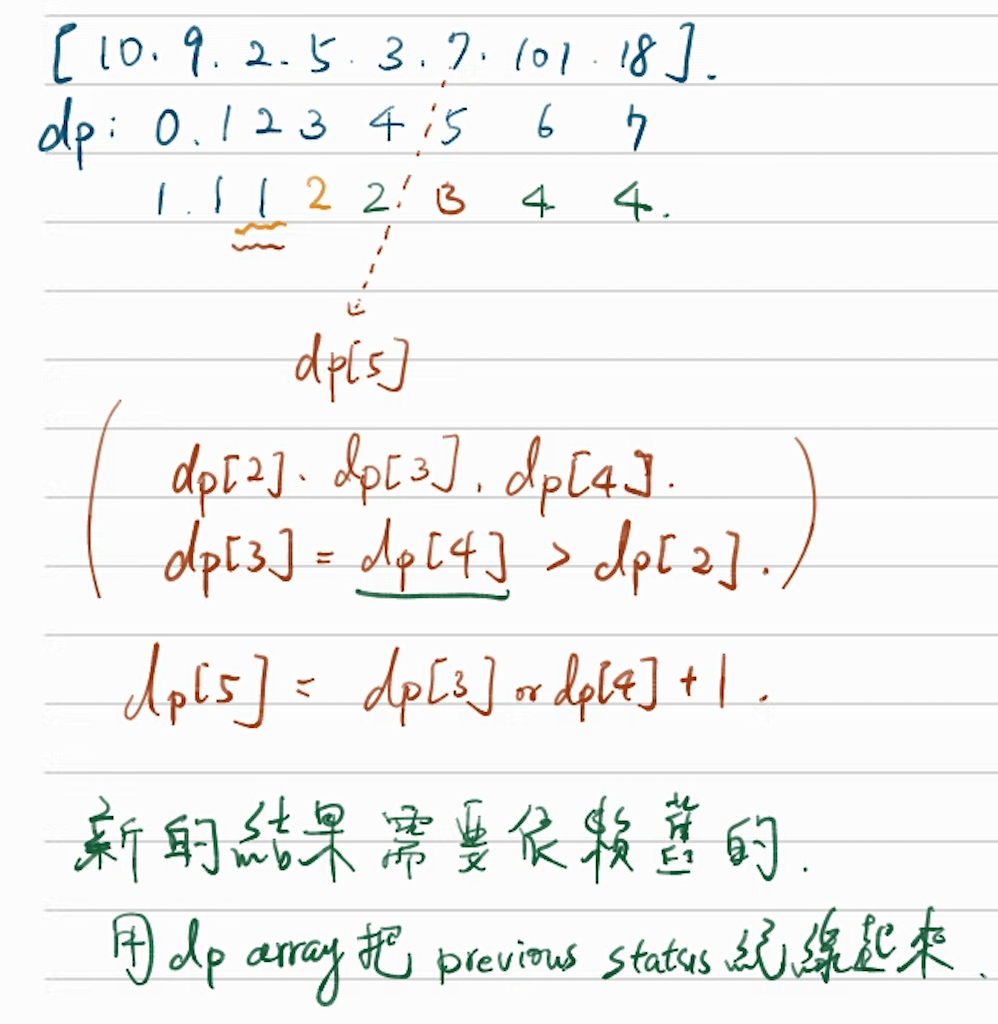 [10. 9. 2. 5. 3. 7. 101. 18].
dp: 0. 1 2 3 4 5 6 7
1. 1 1 2 2 3 4 4.
dp[5]
( dp[2]. dp[3]. dp[4].
dp[3] = dp[4] > dp[2]. )
dp[5] = dp[3] or dp[4] + 1.
新的結果需要依賴舊的.
用 dp array 把 previous status 紀錄起來.